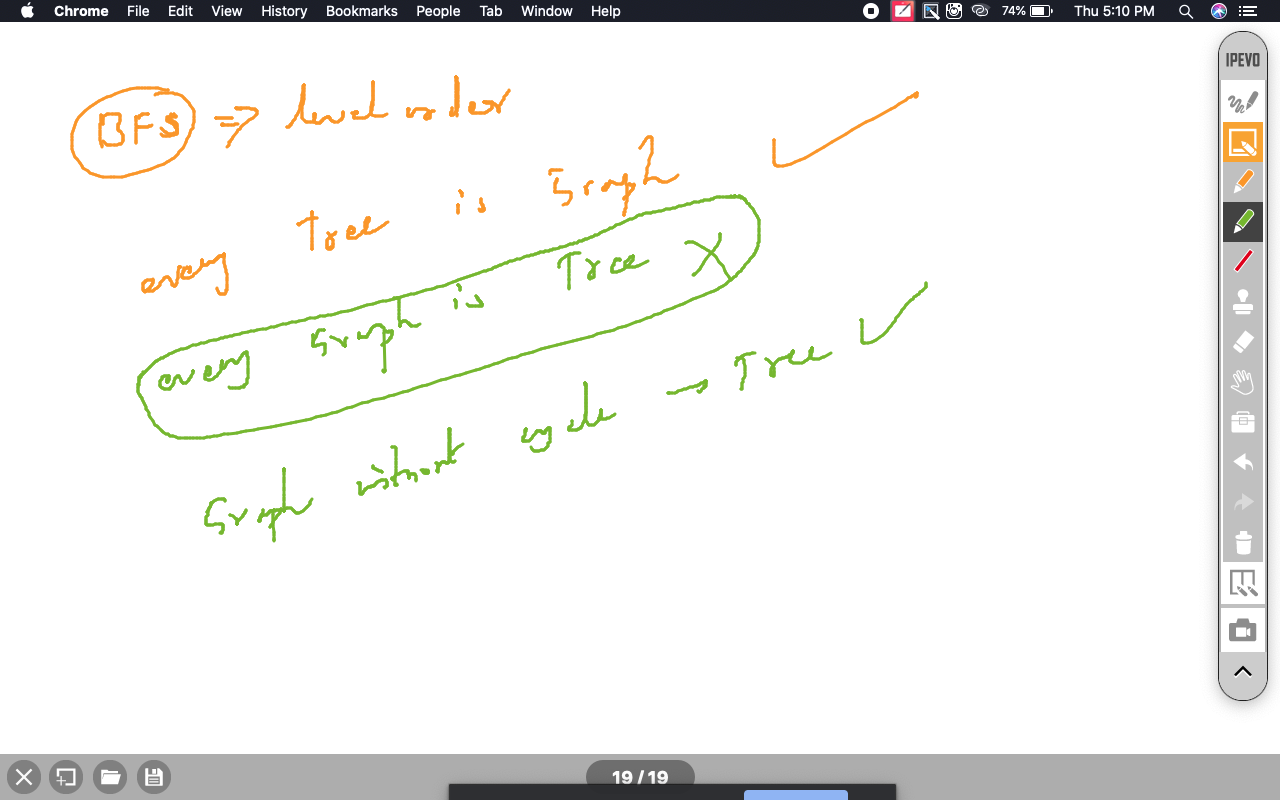 Chrome File Edit View History Bookmarks People Tab Window Help 74% Thu 5:10 PM
IPEVO
BFS ⇒ level order
every Tree is Graph ✓
every Graph is Tree X
Graph without cycle → Tree ✓
19 / 19